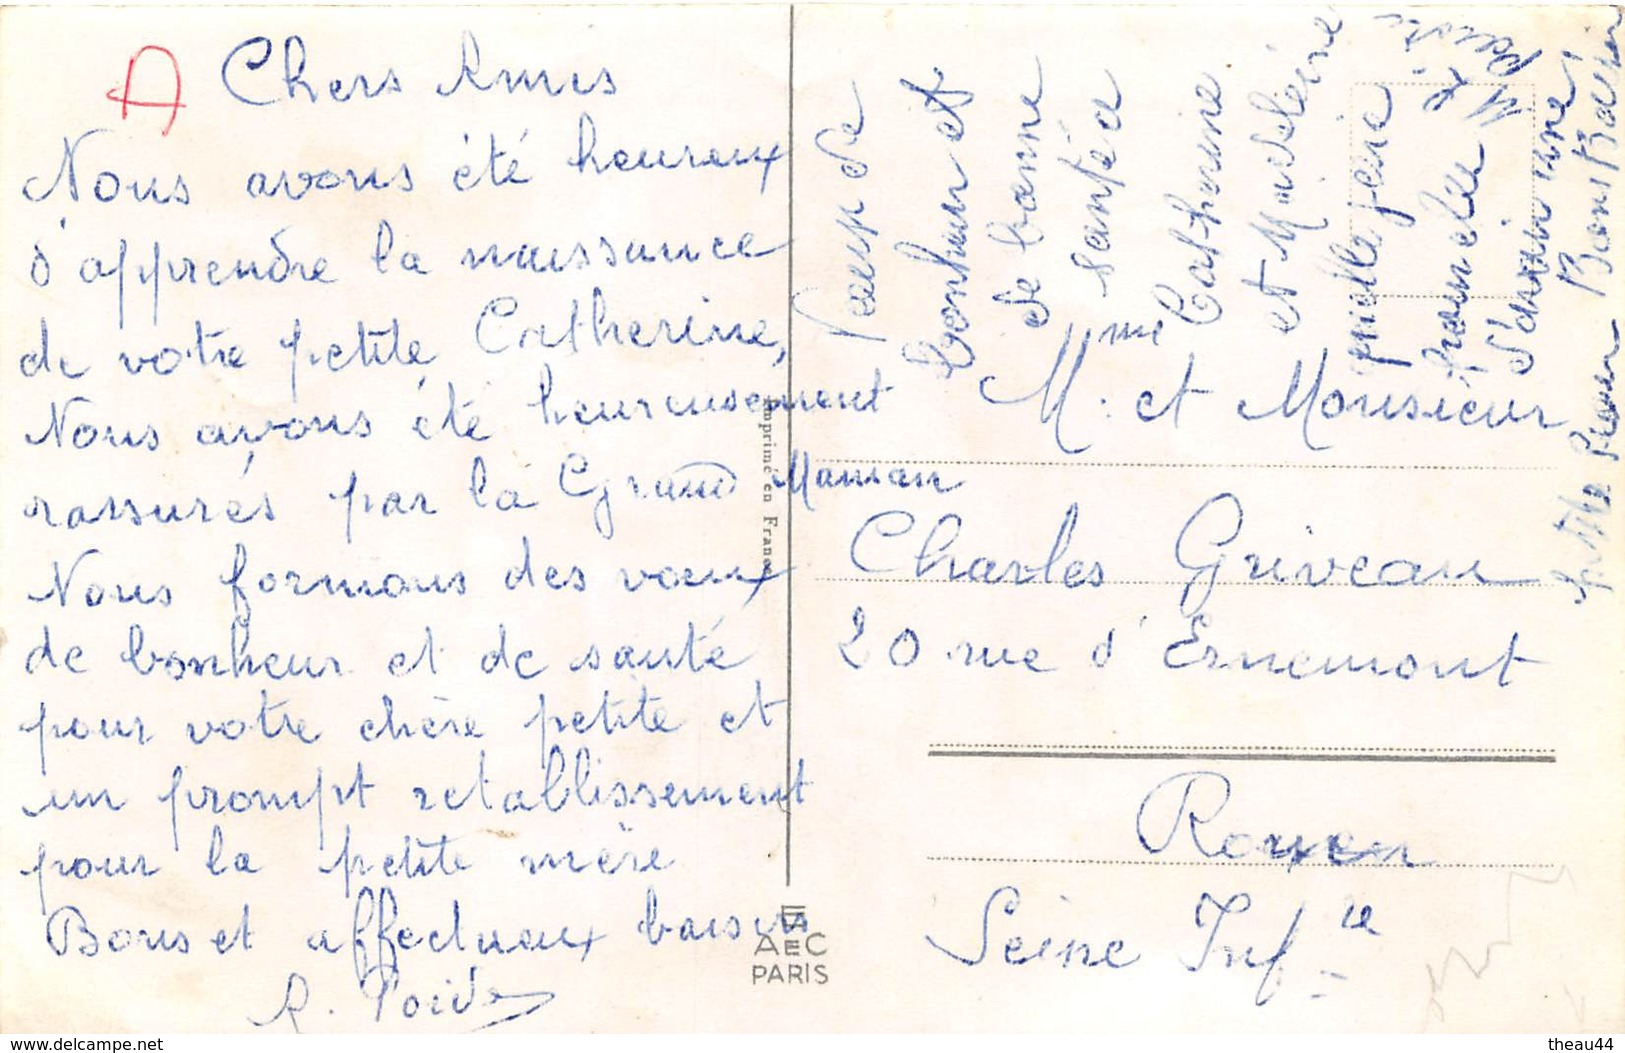 A
Chers Amis
Nous avons été heureux
d'apprendre la naissance
de votre petite Catherine,
Nous avons été heureusement
rassurés par la Grand Maman
Nous formons des voeux
de bonheur et de santé
pour votre chère petite et
un prompt retablissement
pour la petite mère
Bons et affectueux baisers
Imprimé en France
AEC
PARIS
de
bonheur et
de bonne
santée a
Catherine
et Madeleine
quelle joie
d'avoir une
petite Bons Baisers
Mme et Monsieur
Charles Griveau
20 rue d'Ernemont
Rouen
Seine Infre
delcampe.net
theau44